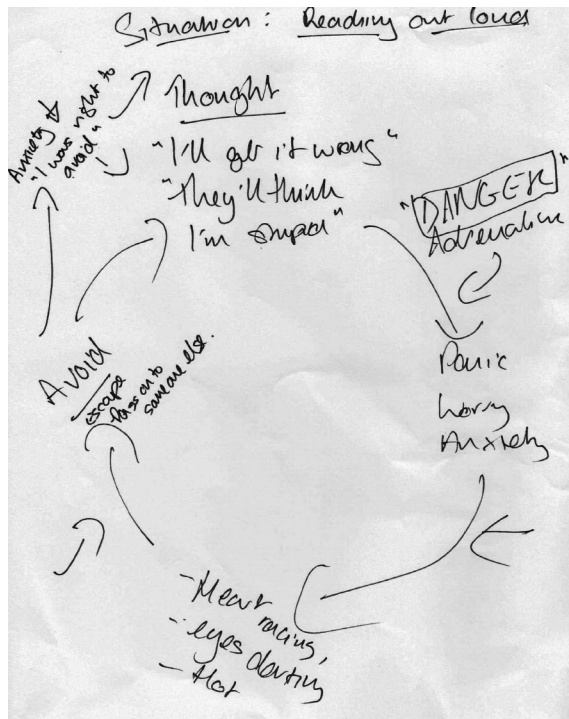 Situation: Reading out loud
Thought
"I'll get it wrong"
"They'll think
I'm stupid"
"DANGER"
Adrenaline
Panic
Worry
Anxiety
- Heart
racing,
- eyes darting
- Hot
Avoid
escape
Pass on to
someone else.
Anxiety ↓
"I was right to
avoid"